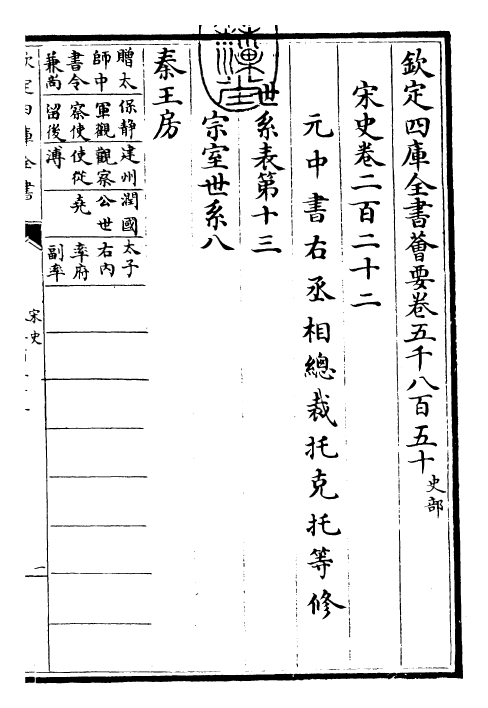 欽定四庫全書薈要卷五千八百五十 史部
宋史卷二百二十二
元中書右丞相總裁托克托等修
世系表第十三
宗室世系八
秦王房
贈太 保静 建州 潤國 太子
師中 軍觀 觀察 公世 右内
書令 察使 使從 堯 率府
兼尚 留後 溥 副率
欽定四庫全書
宋史